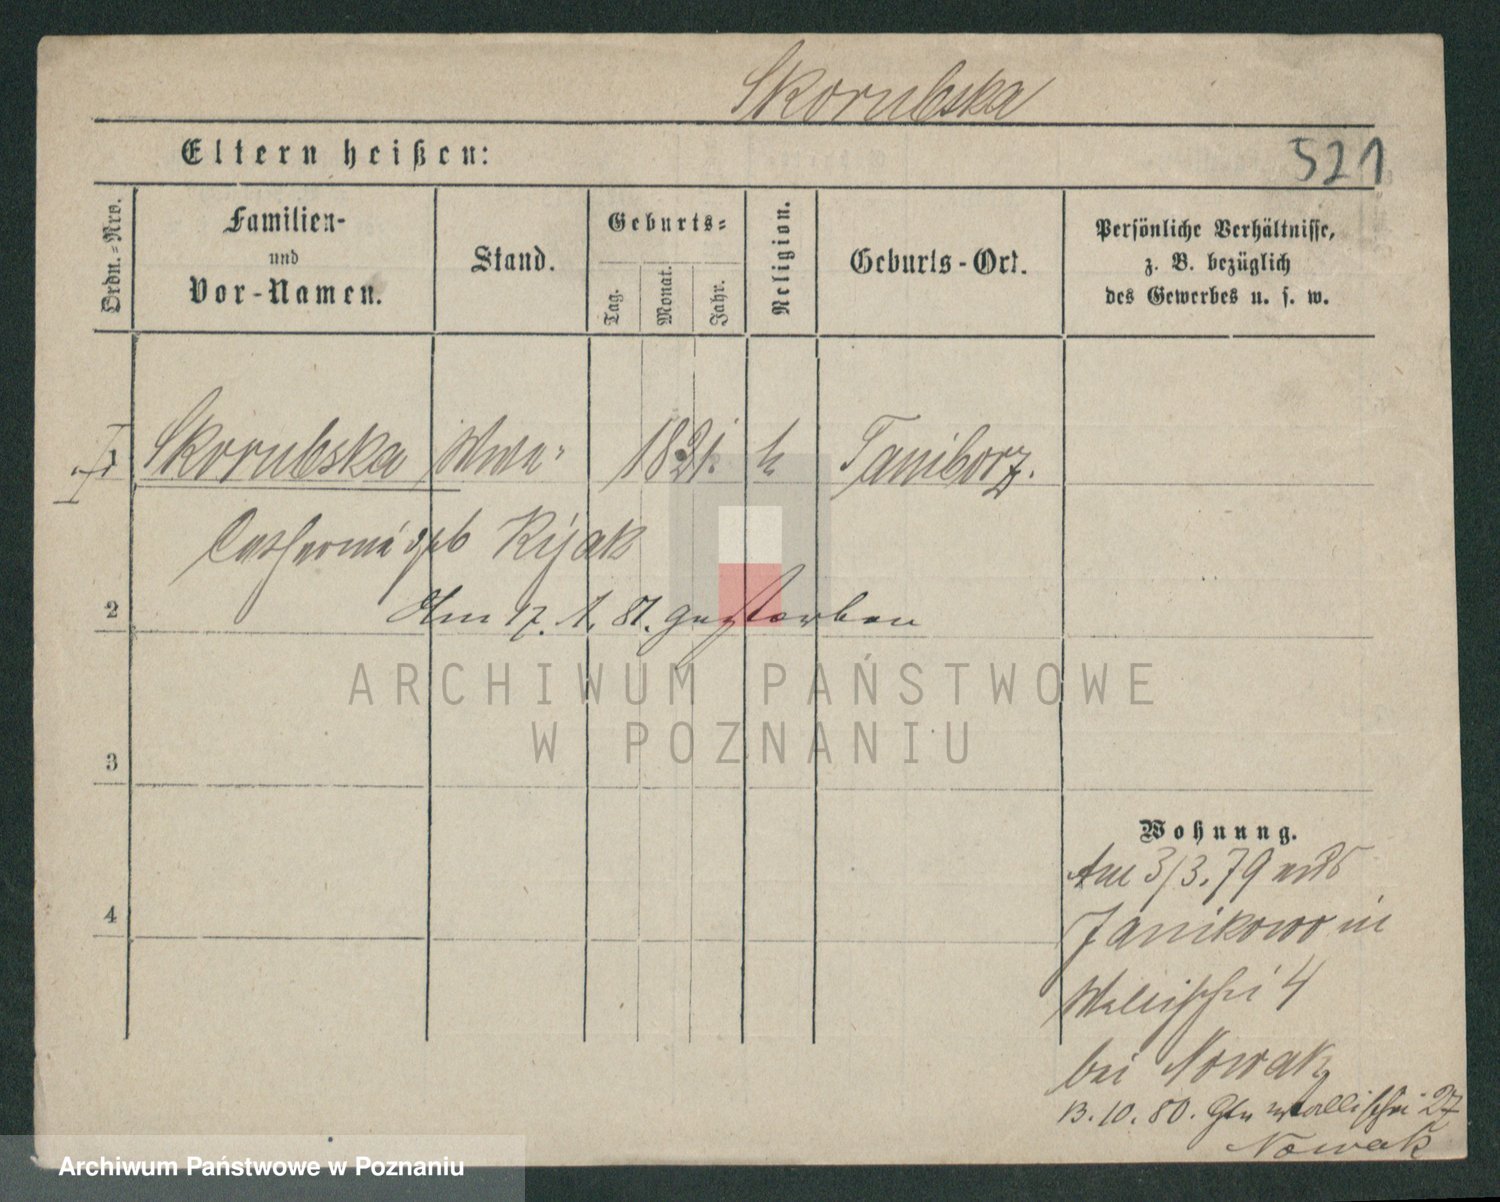 Skorubska
Eltern heißen:
521
Ordn.-Nro.
Familien-
und
Vor-Namen.
Stand.
Geburts-
Tag.
Monat.
Jahr.
Religion.
Geburts-Ort.
Persönliche Verhältnisse,
z. B. bezüglich
des Gewerbes u. s. w.
1 Skorubska Wwe 1821. k Taniborz.
Catharina geb Kijak
2
Am 17. 1. 81. gestorben
ARCHIWUM PAŃSTWOWE
W POZNANIU
3
4
Wohnung.
Am 3/3. 79 aus
Janikowo in
Wallischei 4
bei Nowak
13. 10. 80. Wallischei 27
Nowak
Archiwum Państwowe w Poznaniu